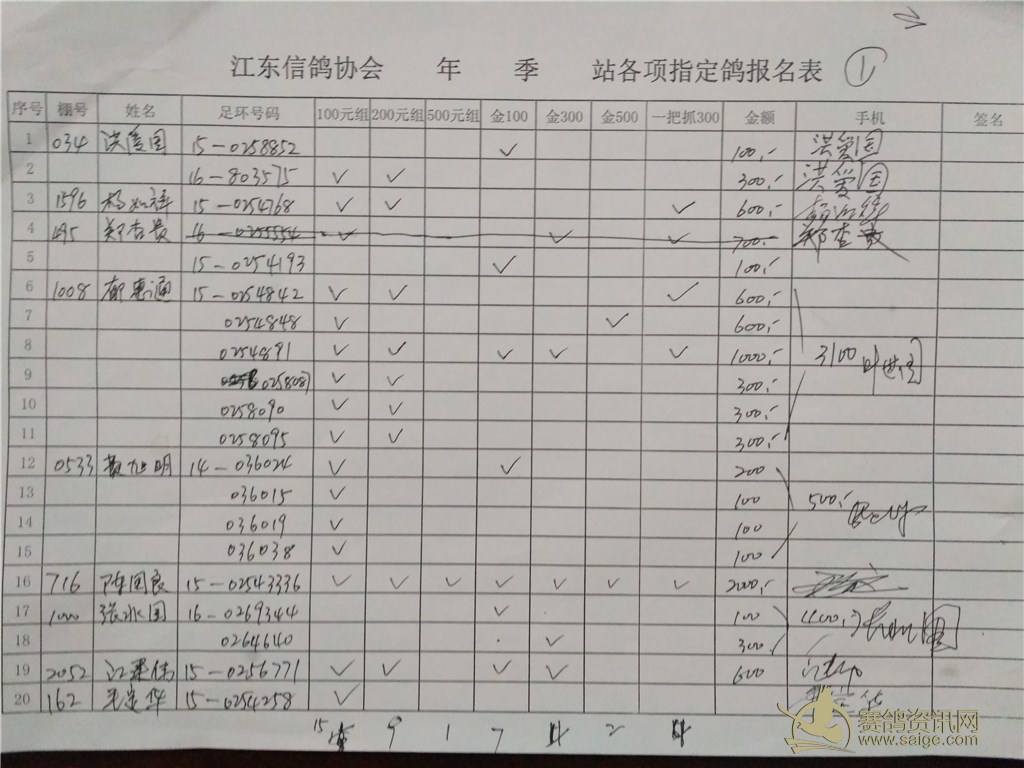 江东信鸽协会 年 季 站各项指定鸽报名表 ①
序号 棚号 姓名 足环号码 100元组 200元组 500元组 金100 金300 金500 一把抓300 金额 手机 签名
1 034 洪爱国 15-0258852 ✓ 100,- 洪爱国
2 16-803575 ✓ ✓ 300,- 洪爱国
3 1596 15-0254768 ✓ ✓ ✓ 600,-
4 495 郑杏贵 16-0255554 ✓ ✓ ✓ 700,- 郑杏贵
5 15-0254193 ✓ 100,-
6 1008 惠通 15-0254842 ✓ ✓ ✓ 600,-
7 0254848 ✓ ✓ 600,-
8 0254891 ✓ ✓ ✓ ✓ ✓ 1000,- 3100
9 0258087 ✓ ✓ 300,-
10 0258090 ✓ ✓ 300,-
11 0258095 ✓ ✓ 300,-
12 0533 14-036024 ✓ ✓ 200
13 036015 ✓ 100 500,-
14 036019 ✓ 100
15 036038 ✓ 100
16 716 陈国良 15-02543336 ✓ ✓ ✓ ✓ ✓ ✓ ✓ 2000,-
17 1000 张水国 16-0269344 ✓ 100
18 0264640 ✓ 300
19 2052 江 伟 15-0256771 ✓ ✓ ✓ ✓ 600
20 162 华 15-0254258 ✓
15 9 1 7 2
赛鸽资讯网
www.saige.com